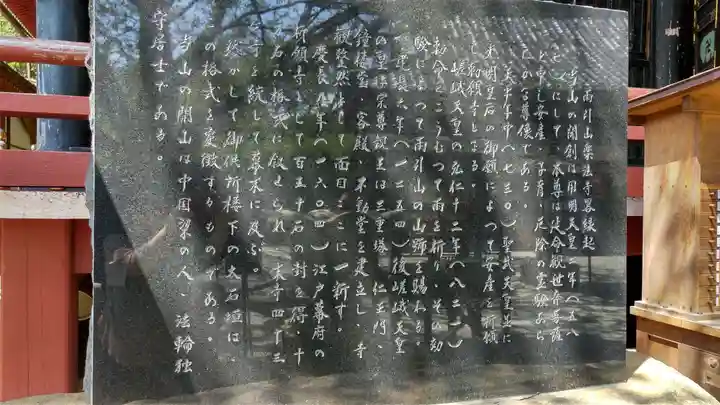 雨引山楽法寺畧縁起
当山の開創は用明天皇二年（五八
七）にして、本尊は延命観世音菩薩
と申し安産、子育、厄除の霊験あら
たかな尊像である。
天平二年（七三〇）聖武天皇並に
光明皇后の御願によつて安産を祈願
し勅願寺とする。
嵯峨天皇の弘仁十二年（八二一）
勅命をこうむつて雨を祈り、その効
験によつて雨引山の山号を賜わる。
建長六年（一二五四）後嵯峨天皇
の皇子宗尊親王は三重塔、仁王門、
鐘楼堂、客殿、東動堂を建立し、寺
観整然として面目ここに一新す。
慶長九年（一六〇四）江戸幕府の
祈願寺として百五十石の封を得、十
万石の格式に叙せられ、末寺四十三
ヶ寺を統して幕末に及ぶ。
然かして御供所楼下の大石垣は、
の格式を象徴するものである。
当山の開山は中国梁の人、法輪独
守居士である。